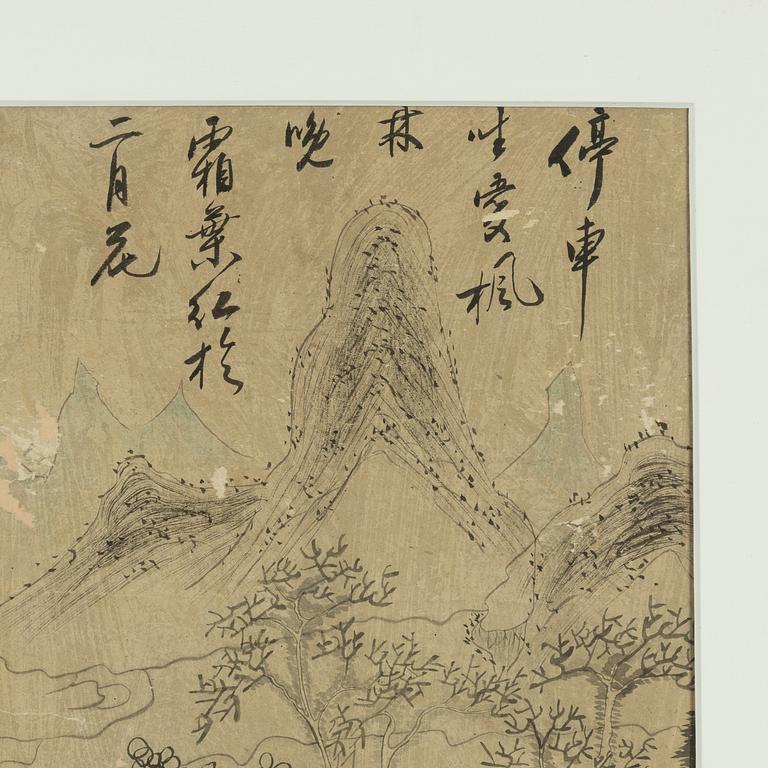 停車
坐愛楓
林
晚
霜葉紅於
二月花